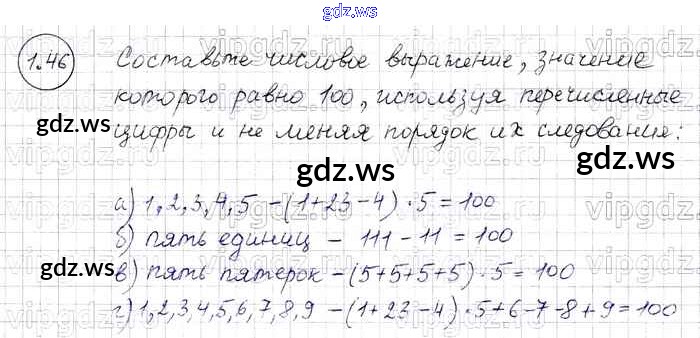 gdz.ws
1.46 Составьте числовое выражение, значение
которого равно 100, используя перечисленные
цифры и не меняя порядок их следования:
gdz.ws
gdz.ws
а) 1, 2, 3, 4, 5 – (1+23-4)·5=100
б) пять единиц – 111-11=100
gdz.ws
gdz.ws
в) пять пятерок – (5+5+5+5)·5=100
г) 1,2,3,4,5,6,7,8,9 – (1+23-4)·5+6-7-8+9=100